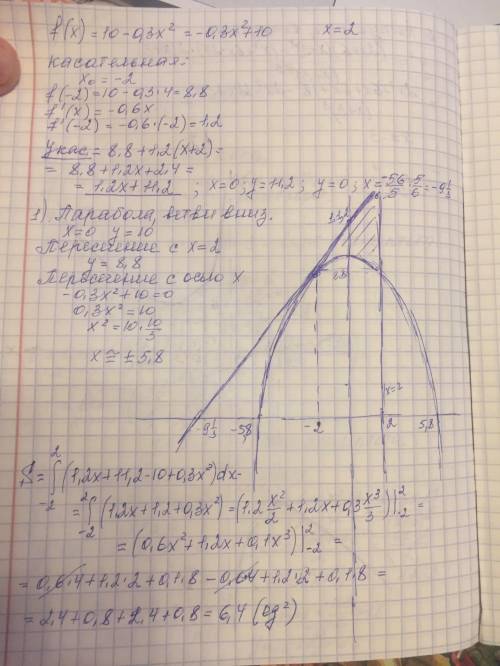 f(x) = 10 - 0,3x² = -0,3x² + 10   x = 2
касательная:
x₀ = -2
f(-2) = 10 - 0,3·4 = 8,8
f'(x) = -0,6x
f'(-2) = -0,6·(-2) = 1,2
y кас = 8,8 + 1,2(x+2) =
= 8,8 + 1,2x + 2,4 =
= 1,2x + 11,2 ; x=0; y=11,2 ; y=0; x = -56/5 · 5/6 = -9 1/3
1) Парабола, ветви вниз.
x=0 y=10
Пересечение с x=2
y = 8,8
Пересечение с осью x
-0,3x² + 10 = 0
0,3x² = 10
x² = 10 · 10/3
x ≅ ± 5,8
x=2
-9 1/3 -5,8 -2 2 5,8
S = ∫₋₂² (1,2x + 11,2 - 10 + 0,3x²)dx -
= ∫₋₂² (1,2x + 1,2 + 0,3x²) = (1,2 x²/2 + 1,2x + 0,3 x³/3) |₋₂² =
= (0,6x² + 1,2x + 0,1x³) |₋₂² =
= 0,6·4 + 1,2·2 + 0,1·8 - 0,6·4 + 1,2·2 + 0,1·8 =
= 2,4 + 0,8 + 2,4 + 0,8 = 6,4 (ед²)